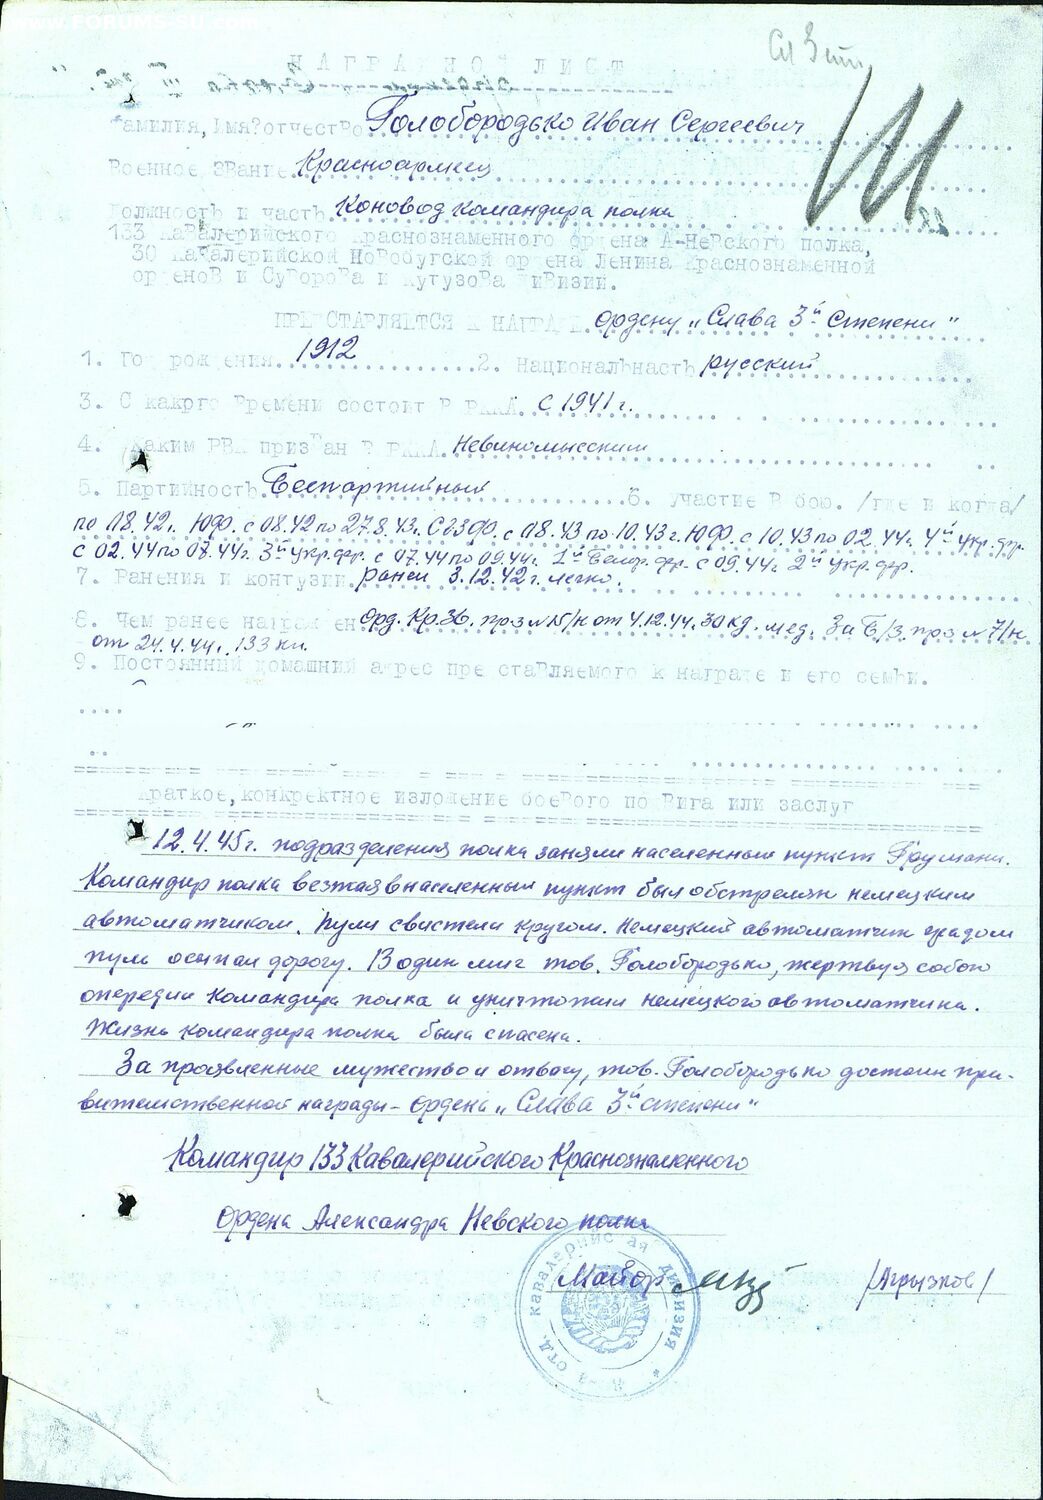 www.FORUMS-SU.com
Сл 3 ст
НАГРАДНОЙ ЛИСТ
Фамилия, Имя?отчество Голобородько Иван Сергеевич
Военное звание Красноармеец
Должность и часть Коновод командира полка
133 Кавалерийского Краснознаменного ордена А-Невского полка,
30 Кавалерийской Новобугской ордена Ленина Краснознаменной
орденов и Суворова и Кутузова дивизии.
ПРЕДСТАВЛЯЕТСЯ К НАГРАДЕ ордену „Слава 3й степени"
1. Год рождения 1912 2. Националънастъ русский
3. С какого времени состоит в РККА с 1941 г.
4. Каким РВК призван в РККА Невиномысским
5. Партийностъ Беспартийный 6. участие в бою. /где и когда/
по 08.42г. ЮФ. с 08.42 по 27.8.43г. СКФ. с 08.43 по 10.43г. ЮФ. с 10.43 по 02.44г. 4й укр. фр.
с 02.44 по 07.44г. 3й укр. фр. с 07.44 по 09.44г. 1й Белор. фр. с 09.44г. 2й укр. фр.
7. Ранения и контузии ранен 3.12.42г. легко.
8. Чем ранее награжден Орд. Кр. Зв. пр-з №15/н от 4.12.44. 30 кд. мед. За Б/З. пр-з №7/н
от 24.4.44г. 133 кп.
9. Постоянный домашний адрес представляемого к награде и его семъи.
Краткое, конкректное изложение боевого подвига или заслуг
12.4.45г. подразделения полка заняли населенный пункт
Командир полка везжая в населенный пункт был обстрелян немецким
автоматчиком. Пули свистели кругом. Немецкий автоматчик градом
пуль осыпал дорогу. В один миг тов. Голобородько, жертвуя собою
опередил командира полка и уничтожил немецкого автоматчика.
Жизнь командира полка была спасена.
За проявленные мужество и отвагу, тов. Голобородько достоин пра-
вительственной награды - ордена „Слава 3й степени"
Командир 133 Кавалерийского Краснознаменного
Ордена Александра Невского полка
Майор /Агрызков/
кавалерийская дивизия * отд.